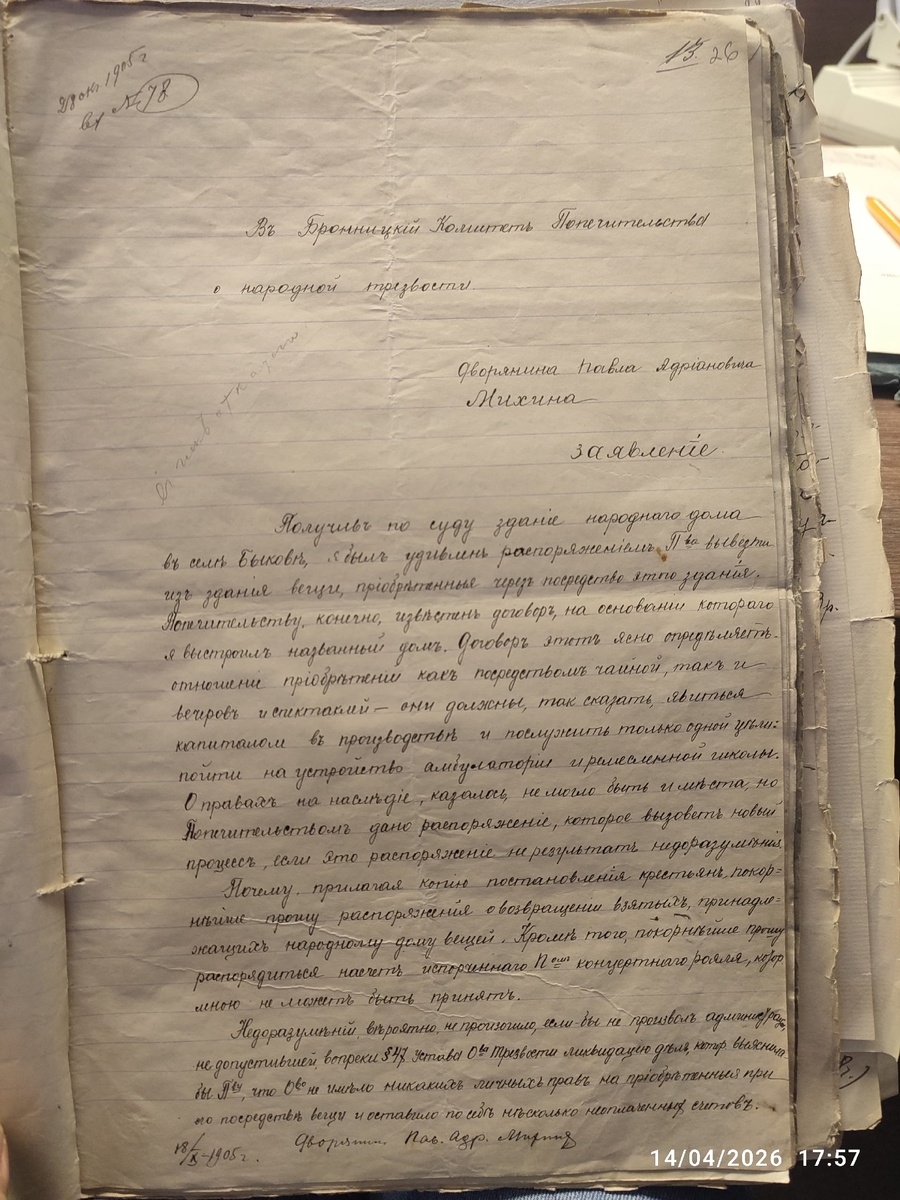 28 окт 1905 г
вх № 78
13. 26
Въ Бронницкій Комитетъ Попечительства
о народной трезвости
Дворянина Павла Адріановича
Михина
заявленіе.
Получивъ по суду зданіе народнаго дома
въ селѣ Быковѣ, я былъ удивленъ распоряженіемъ П-ва вывезти
изъ зданія вещи, пріобрѣтенныя черезъ посредство этого зданія.
Попечительству, конечно, извѣстенъ договоръ, на основаніи котораго
я выстроилъ названный домъ. Договоръ этотъ ясно опредѣляетъ
отношеніи пріобрѣтеній какъ посредствомъ чайной, такъ и
вечеровъ и спектаклей — они должны, такъ сказать, явиться
капиталомъ въ производствѣ и послужить только одной цѣли:
пойти на устройство амбулаторіи и ремесленной школы.
О правахъ на наслѣдіе, казалось, не могло быть и мѣста, но
Попечительствомъ дано распоряженіе, которое вызоветъ новый
процессъ, если это распоряженіе не результатъ недоразумѣнія.
Почему, прилагая копію постановленія крестьянъ, покор-
нѣйше прошу распоряженія о возвращеніи взятыхъ, принадле-
жащихъ народному дому вещей. Кромѣ того, покорнѣйше прошу
распорядиться насчетъ испорченнаго П-омъ концертнаго рояля, котор
мною не можетъ быть принятъ.
Недоразумѣній, вѣроятно, не произошло, если-бы не произволъ администрации,
не допустившей, вопреки § 47 Устава О-ва Трезвости ликвидацію дѣла, котор выяснила
бы П-ву, что О-во не имѣло никакихъ личныхъ правъ на пріобрѣтенныя при
его посредствѣ вещи и оставило по себѣ нѣсколько неоплаченныхъ счетовъ.
18/X-1905 г. Дворянин. Пав. Адр. Михин